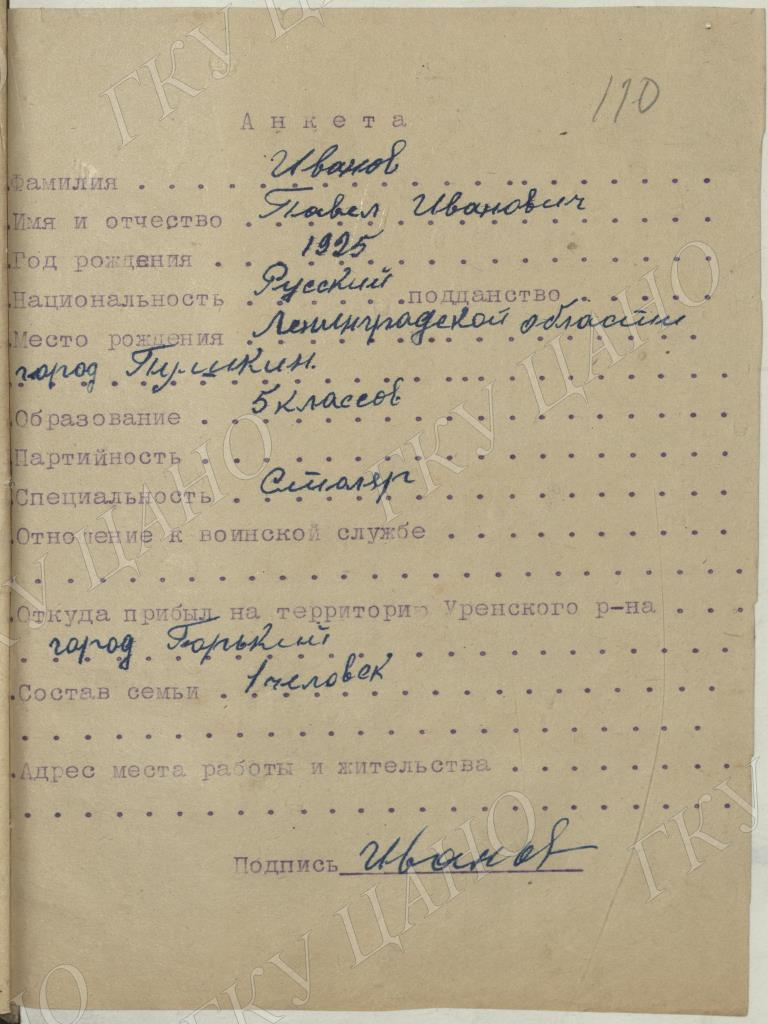 110
Анкета
Фамилия . . . Иванов
Имя и отчество . . . Павел Иванович
Год рождения . . . 1925
Национальность . . . Русский подданство . . .
Место рождения . . . Ленинградской области
город Пушкин.
Образование . . . 5 классов
Партийность . . .
Специальность . . . Столяр
Отношение к воинской службе . . .
Откуда прибыл на территорию Уренского р-на . . .
город Горький
Состав семьи . . . 1 человек
Адрес места работы и жительства . . .
Подпись Иванов
ГКУ ЦАНО